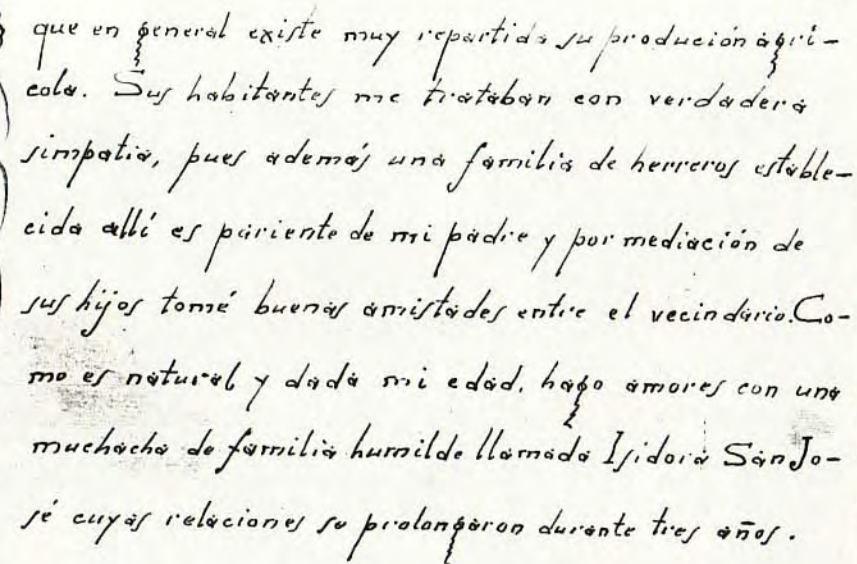 que en general existe muy repartida su produción agrí-
cola. Sus habitantes me trataban con verdadera
simpatia, pues además una familia de herreros estable-
cida allí es pariente de mi padre y por mediación de
sus hijos tomé buenas amistades entre el vecindario. Co-
mo es natural y dada mi edad, hago amores con una
muchacha de familia humilde llamada Isidora San Jo-
sé cuyas relaciones se prolongaron durante tres años.